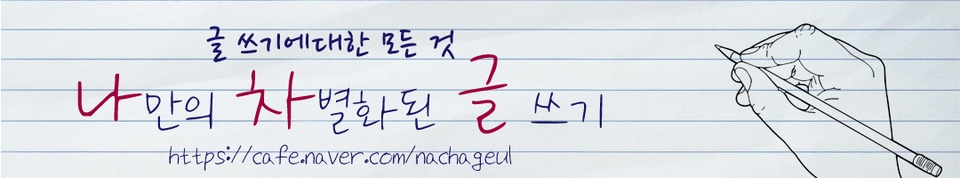 글 쓰기에대한 모든 것
나만의 차별화된 글 쓰기
https://cafe.naver.com/nachageul